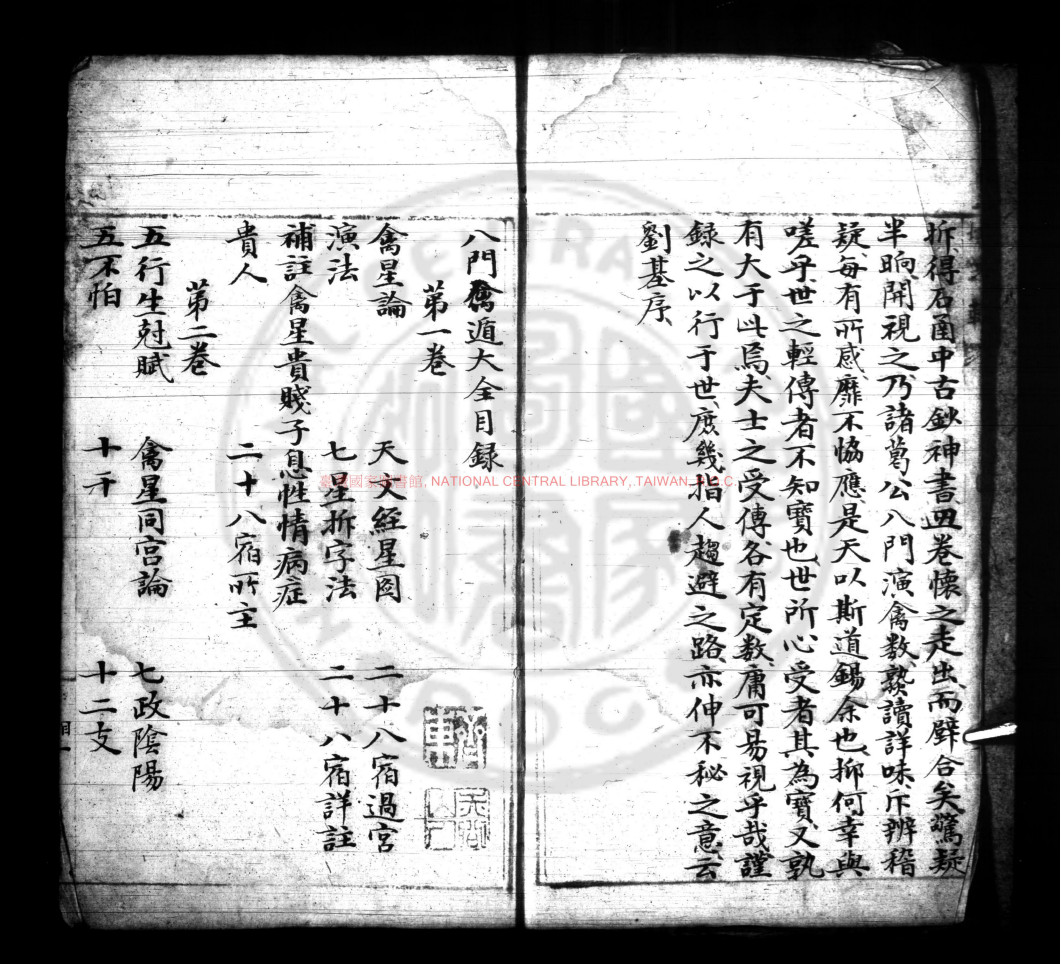 拆得石凾中古鈔神書四卷懷之走出而壁合矣驚疑
半晌開視之乃諸葛公八門演禽数熟讀詳味斤辨稽
疑每有所感靡不恊應是天以斯道錫余也抑何幸與
嗟乎世之輕傳者不知寶也世所心受者其為寶又孰
有大于此焉夫士之受傳各有定数庸可易視乎哉謹
録之以行于世庶幾指人趨避之路亦伸不秘之意云
劉基序
八門禽遁大全目録
第一卷
禽星論 天文經星圖 二十八宿過宫
演法 七星拆字法 二十八宿詳註
補註禽星貴賤子息性情病症
貴人 二十八宿所主
第二卷
五行生尅賦 禽星同宮論 七政陰陽
五不怕 十干 十二支
臺灣國家圖書館, NATIONAL CENTRAL LIBRARY, TAIWAN, R.O.C.